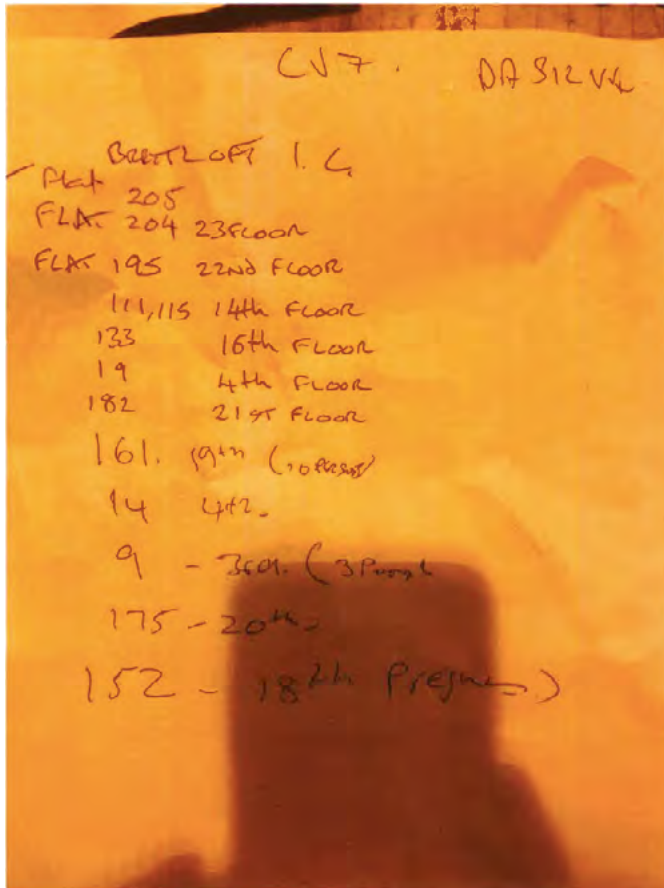 CU7. DA SILVA
BRETTLOFT I.C.
Flat 205
FLAT 204 23 FLOOR
FLAT 195 22Nd FLOOR
111, 115 14th FLOOR
133 16th FLOOR
19 4th FLOOR
182 21ST FLOOR
161. 19th
14 4th.
9 - 3rd. (3 People
175 - 20th -
152 - 18th